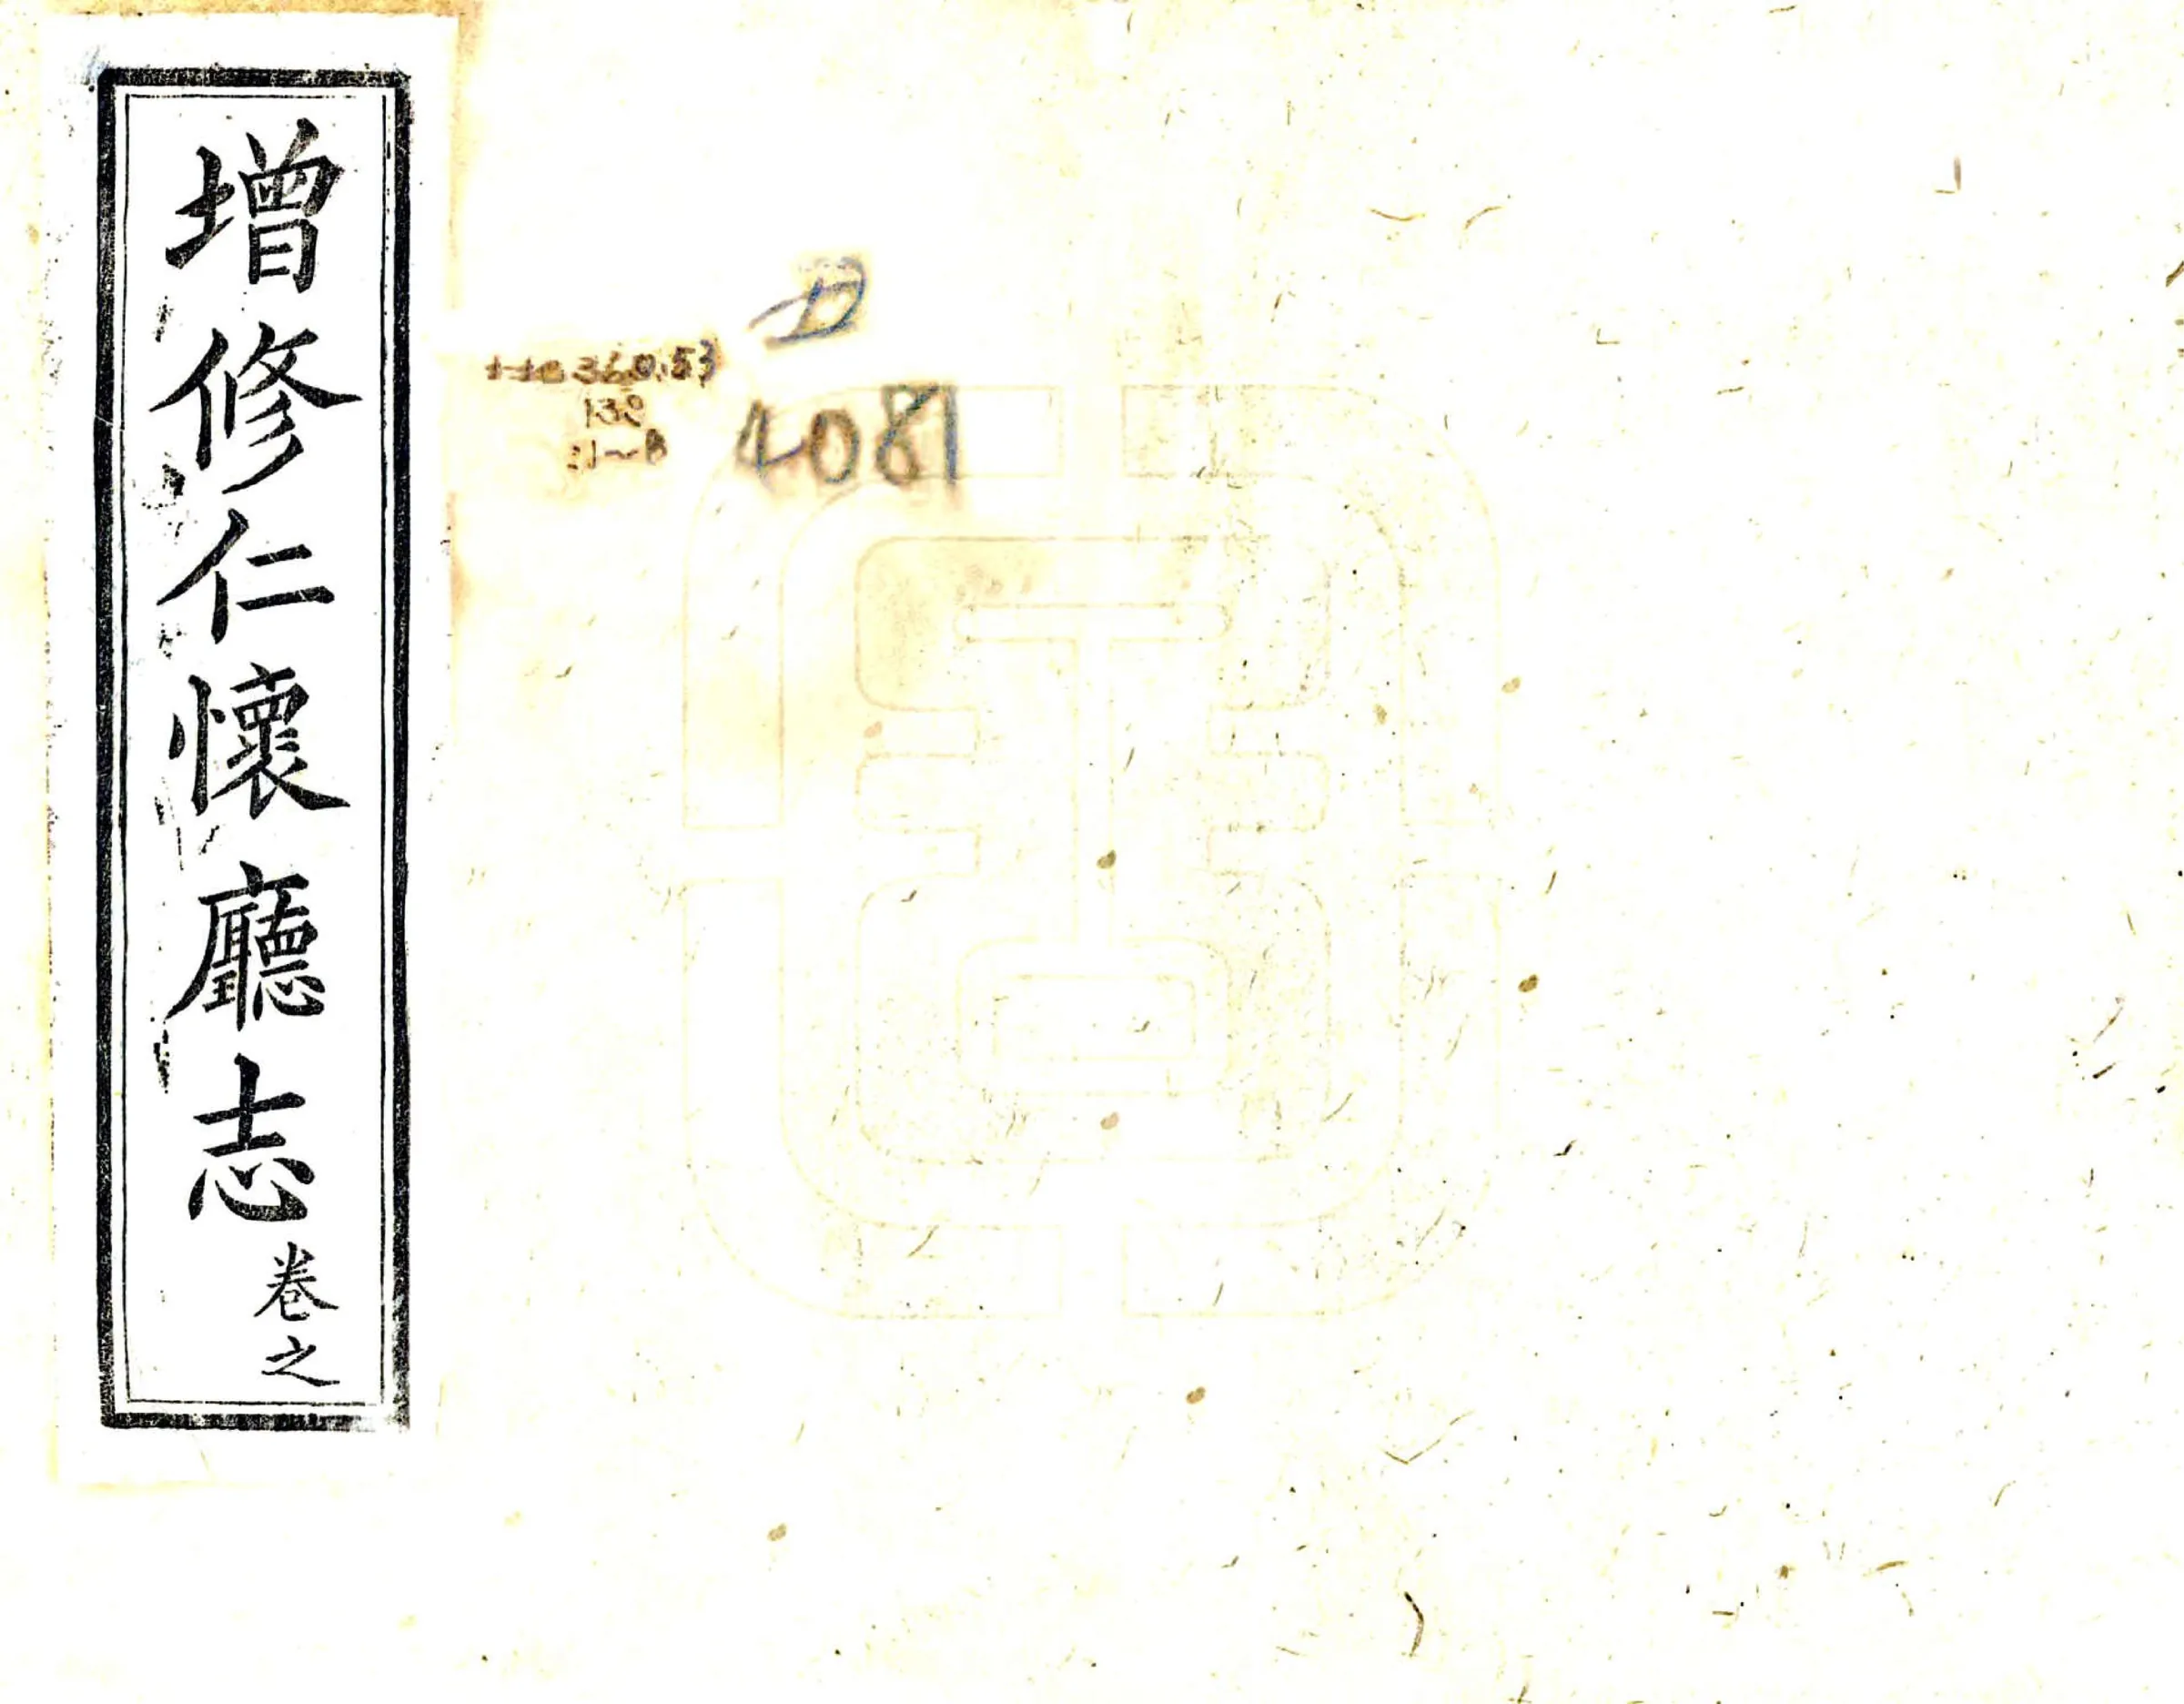 增修仁懷廳志
卷之
360.53
138
:1~8
4081